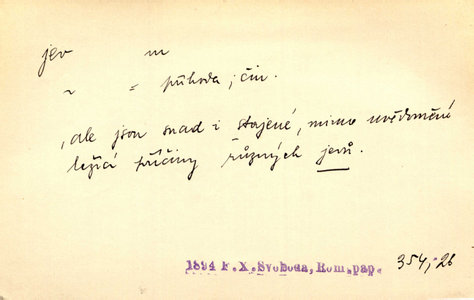 jev m
~ = příhoda; čin.
„ale jsou snad i stajené, mimo uvědomění
ležící příčiny různých jevů.
1894 F.X.Svoboda, Rom.pap. 354,-26